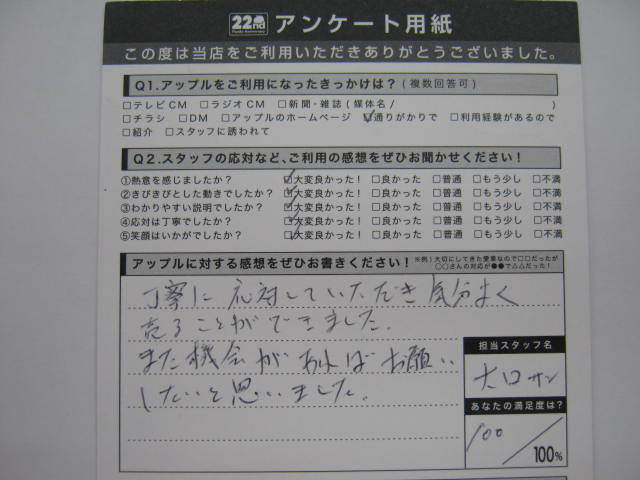 22nd アンケート用紙
この度は当店をご利用いただきありがとうございました。
Q1.アップルをご利用になったきっかけは？(複数回答可)
□テレビCM □ラジオCM □新聞・雑誌(媒体名/ )
□チラシ □DM □アップルのホームページ ☑通りがかりで □利用経験があるので
□紹介 □スタッフに誘われて
Q2.スタッフの応対など、ご利用の感想をぜひお聞かせください！
①熱意を感じましたか？ ☑大変良かった！ □良かった □普通 □もう少し □不満
②きびきびとした動きでしたか？ ☑大変良かった！ □良かった □普通 □もう少し □不満
③わかりやすい説明でしたか？ ☑大変良かった！ □良かった □普通 □もう少し □不満
④応対は丁寧でしたか？ ☑大変良かった！ □良かった □普通 □もう少し □不満
⑤笑顔はいかがでしたか？ ☑大変良かった！ □良かった □普通 □もう少し □不満
アップルに対する感想をぜひお書きください！ ※例)大切にしてきた愛車なので□□だったが
○○さんの対応が●●で△△だった！
丁寧に応対していただき気分よく
売ることができました。
また機会があればお願い
したいと思いました。
担当スタッフ名
大口サン
あなたの満足度は？
100/100%